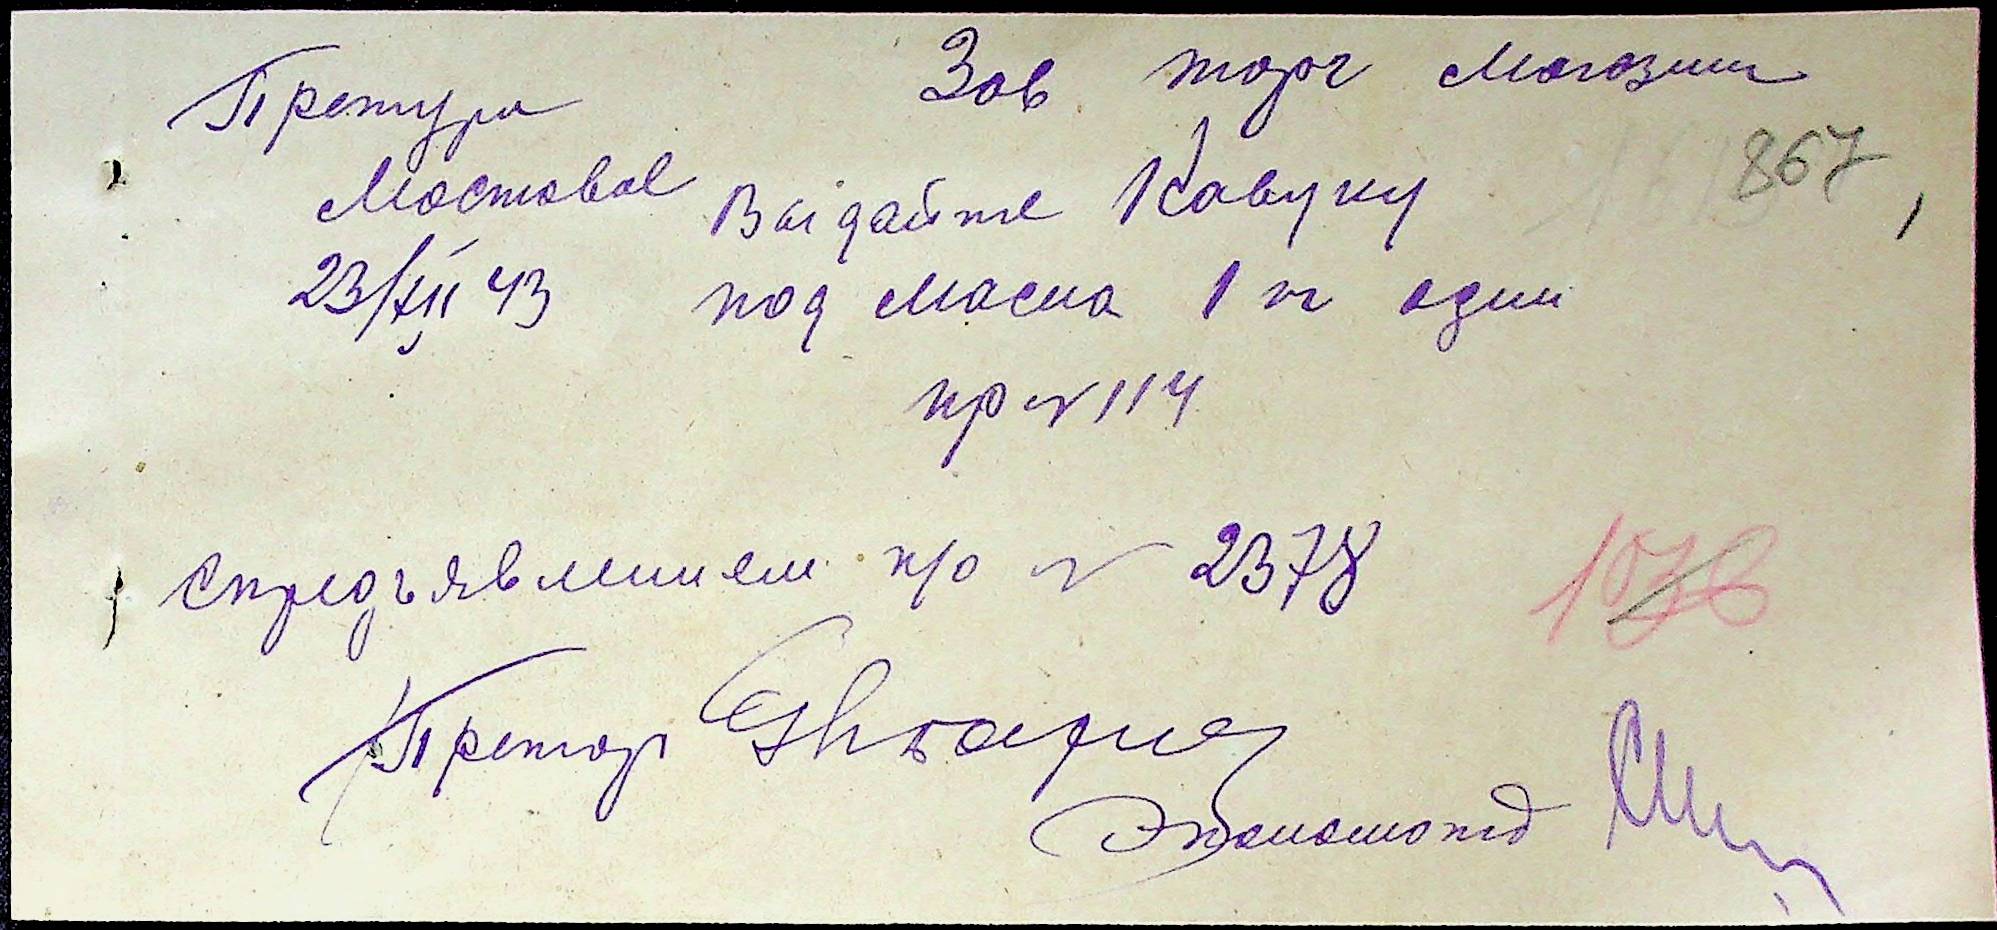 Претура
Мостовое
23/XII 43
Зав торг магазин
867
Выдайте Кавуну
под масла 1 кг один
кр № 114
с предъявлением к/о № 2378
1038
Претор
Экономотд